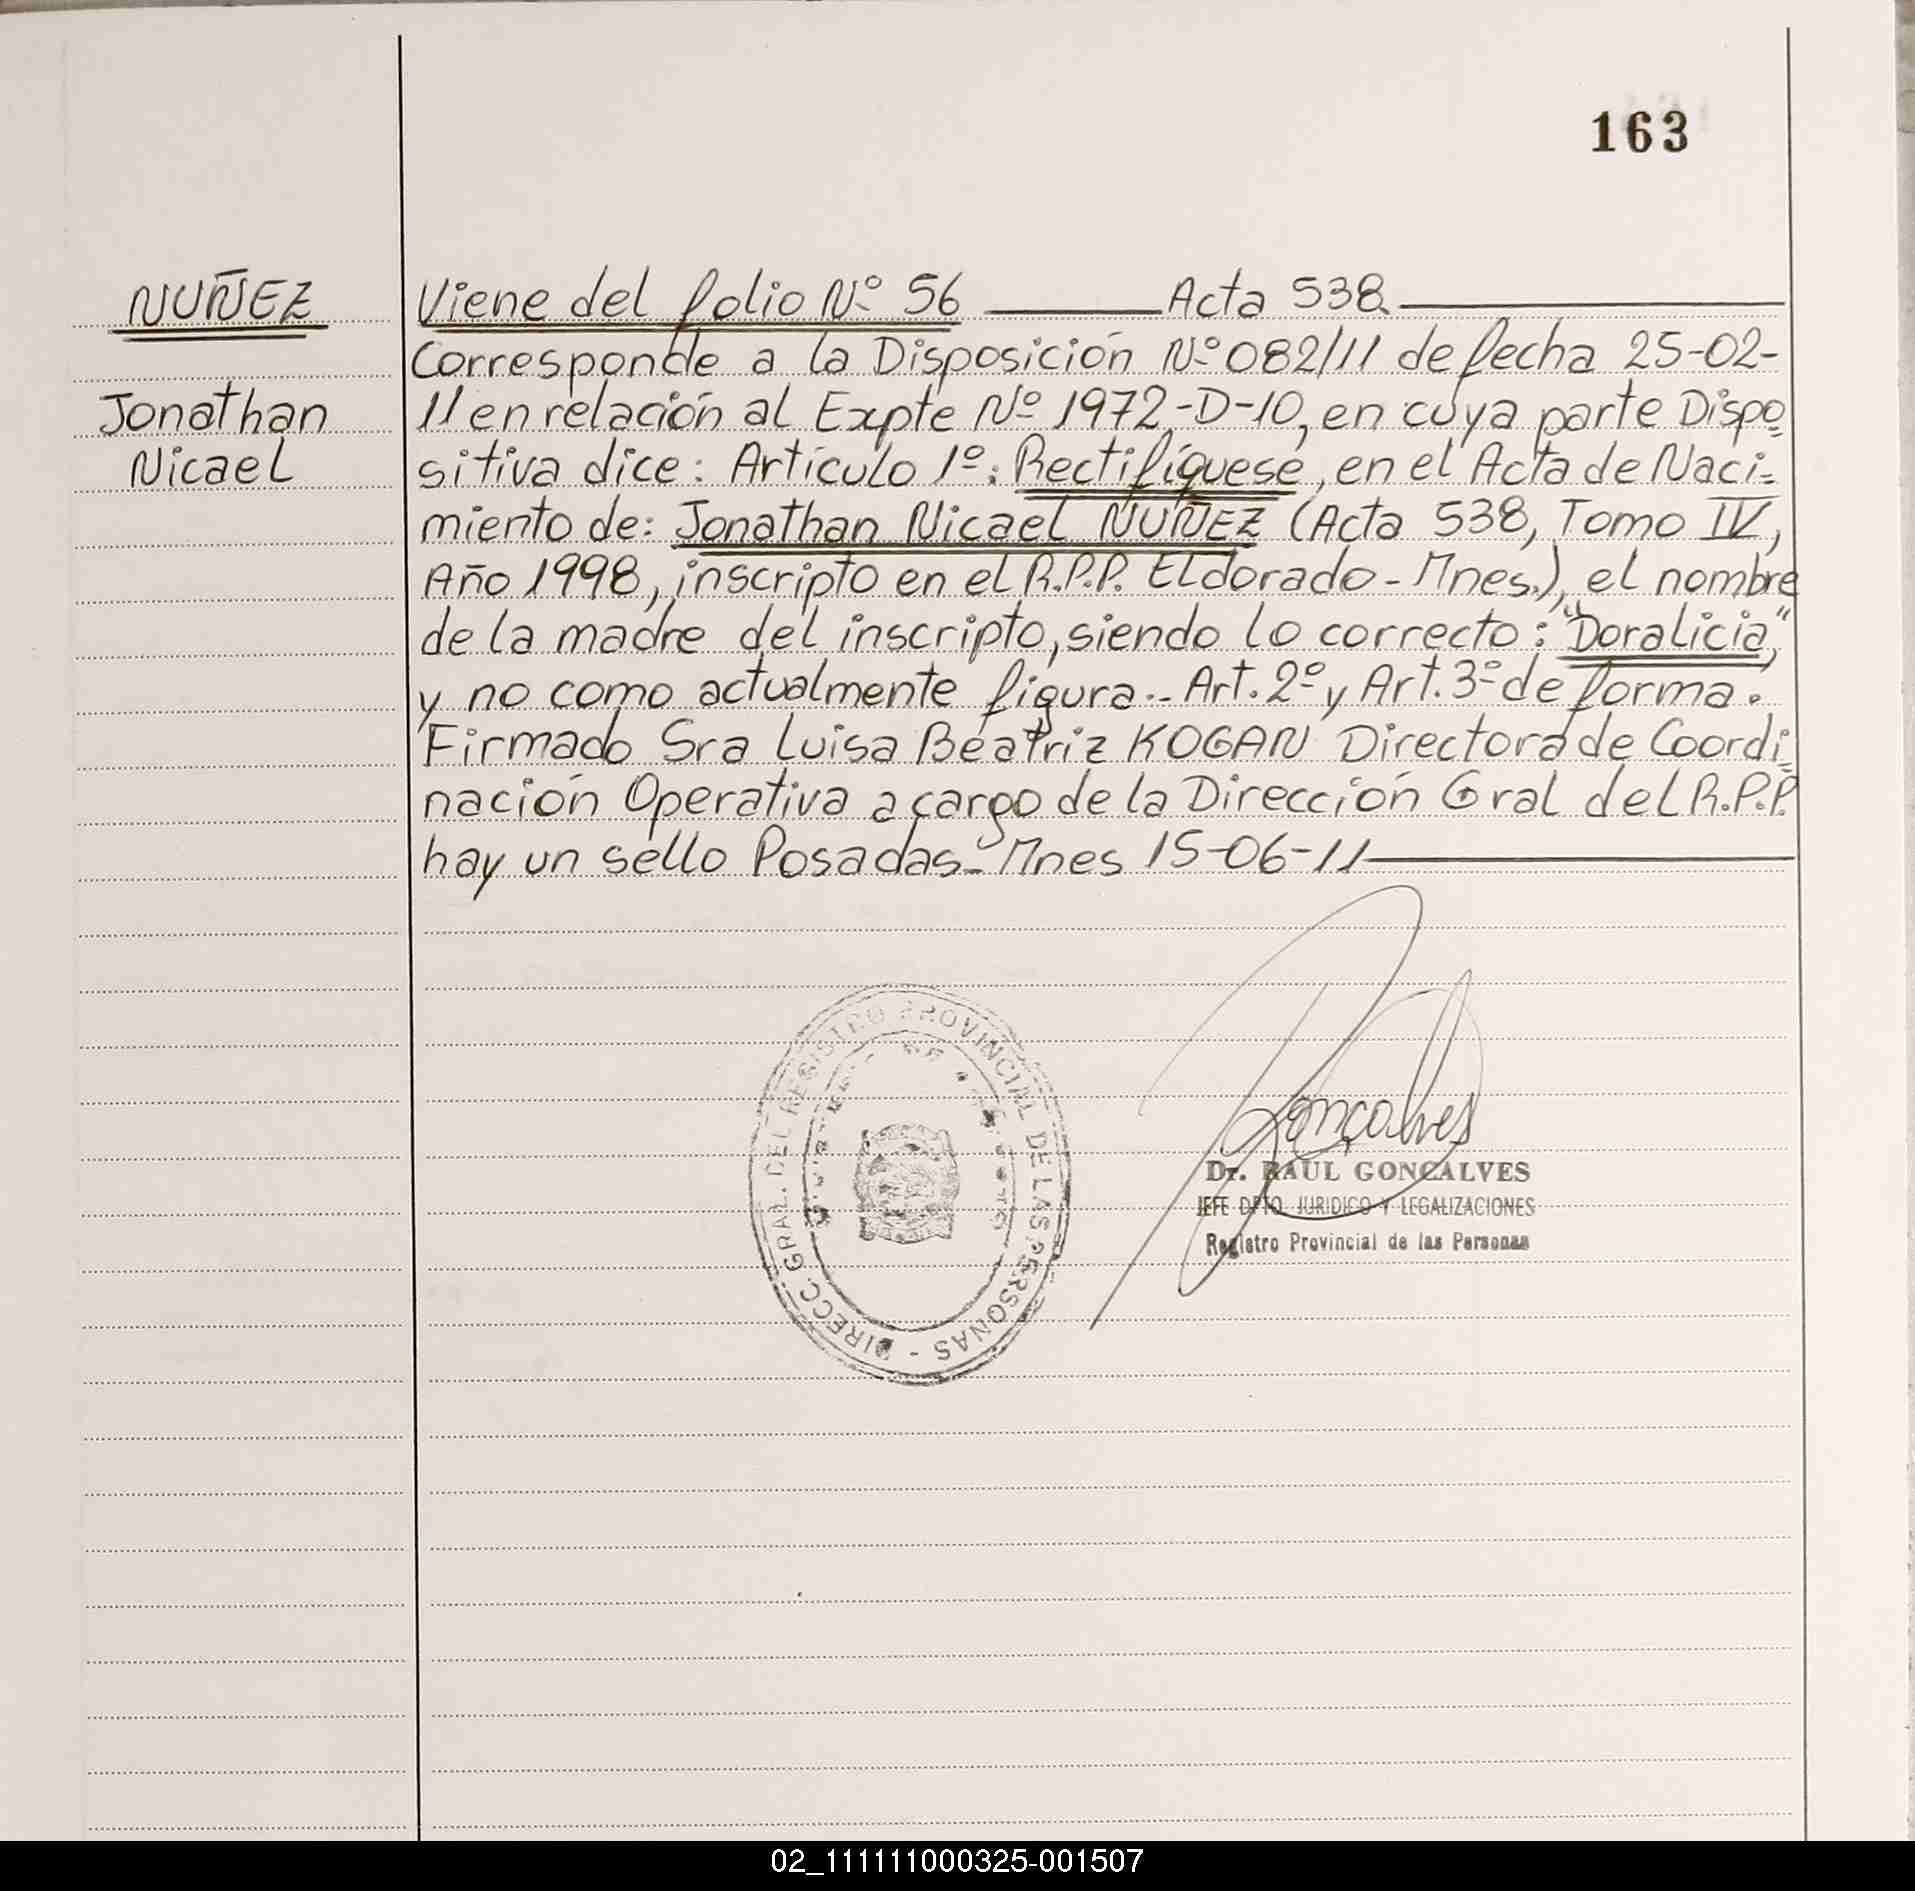 163
NUÑEZ
Jonathan
Nicael
Viene del folio Nº 56 Acta 538
Corresponde a la Disposición Nº 082/11 de fecha 25-02-
11 en relación al Expte Nº 1972-D-10, en cuya parte Dispo
sitiva dice: Artículo 1º: Rectifíquese, en el Acta de Naci=
miento de: Jonathan Nicael NUÑEZ (Acta 538, Tomo IV,
Año 1998, inscripto en el R.P.P. Eldorado - Mnes.), el nombre
de la madre del inscripto, siendo lo correcto: "Doralicia,"
y no como actualmente figura.. Art. 2º y Art. 3º de forma.
Firmado Sra Luisa Beatriz KOGAN Directora de Coordi
nación Operativa a cargo de la Dirección Gral del R.P.P.
hay un sello Posadas - Mnes 15-06-11
DIRECC. GRAL. DEL REGISTRO PROVINCIAL DE LAS PERSONAS -
Gonçalves
Dr. RAUL GONÇALVES
JEFE DPTO JURIDICO Y LEGALIZACIONES
Registro Provincial de las Personas
02_111111000325-001507